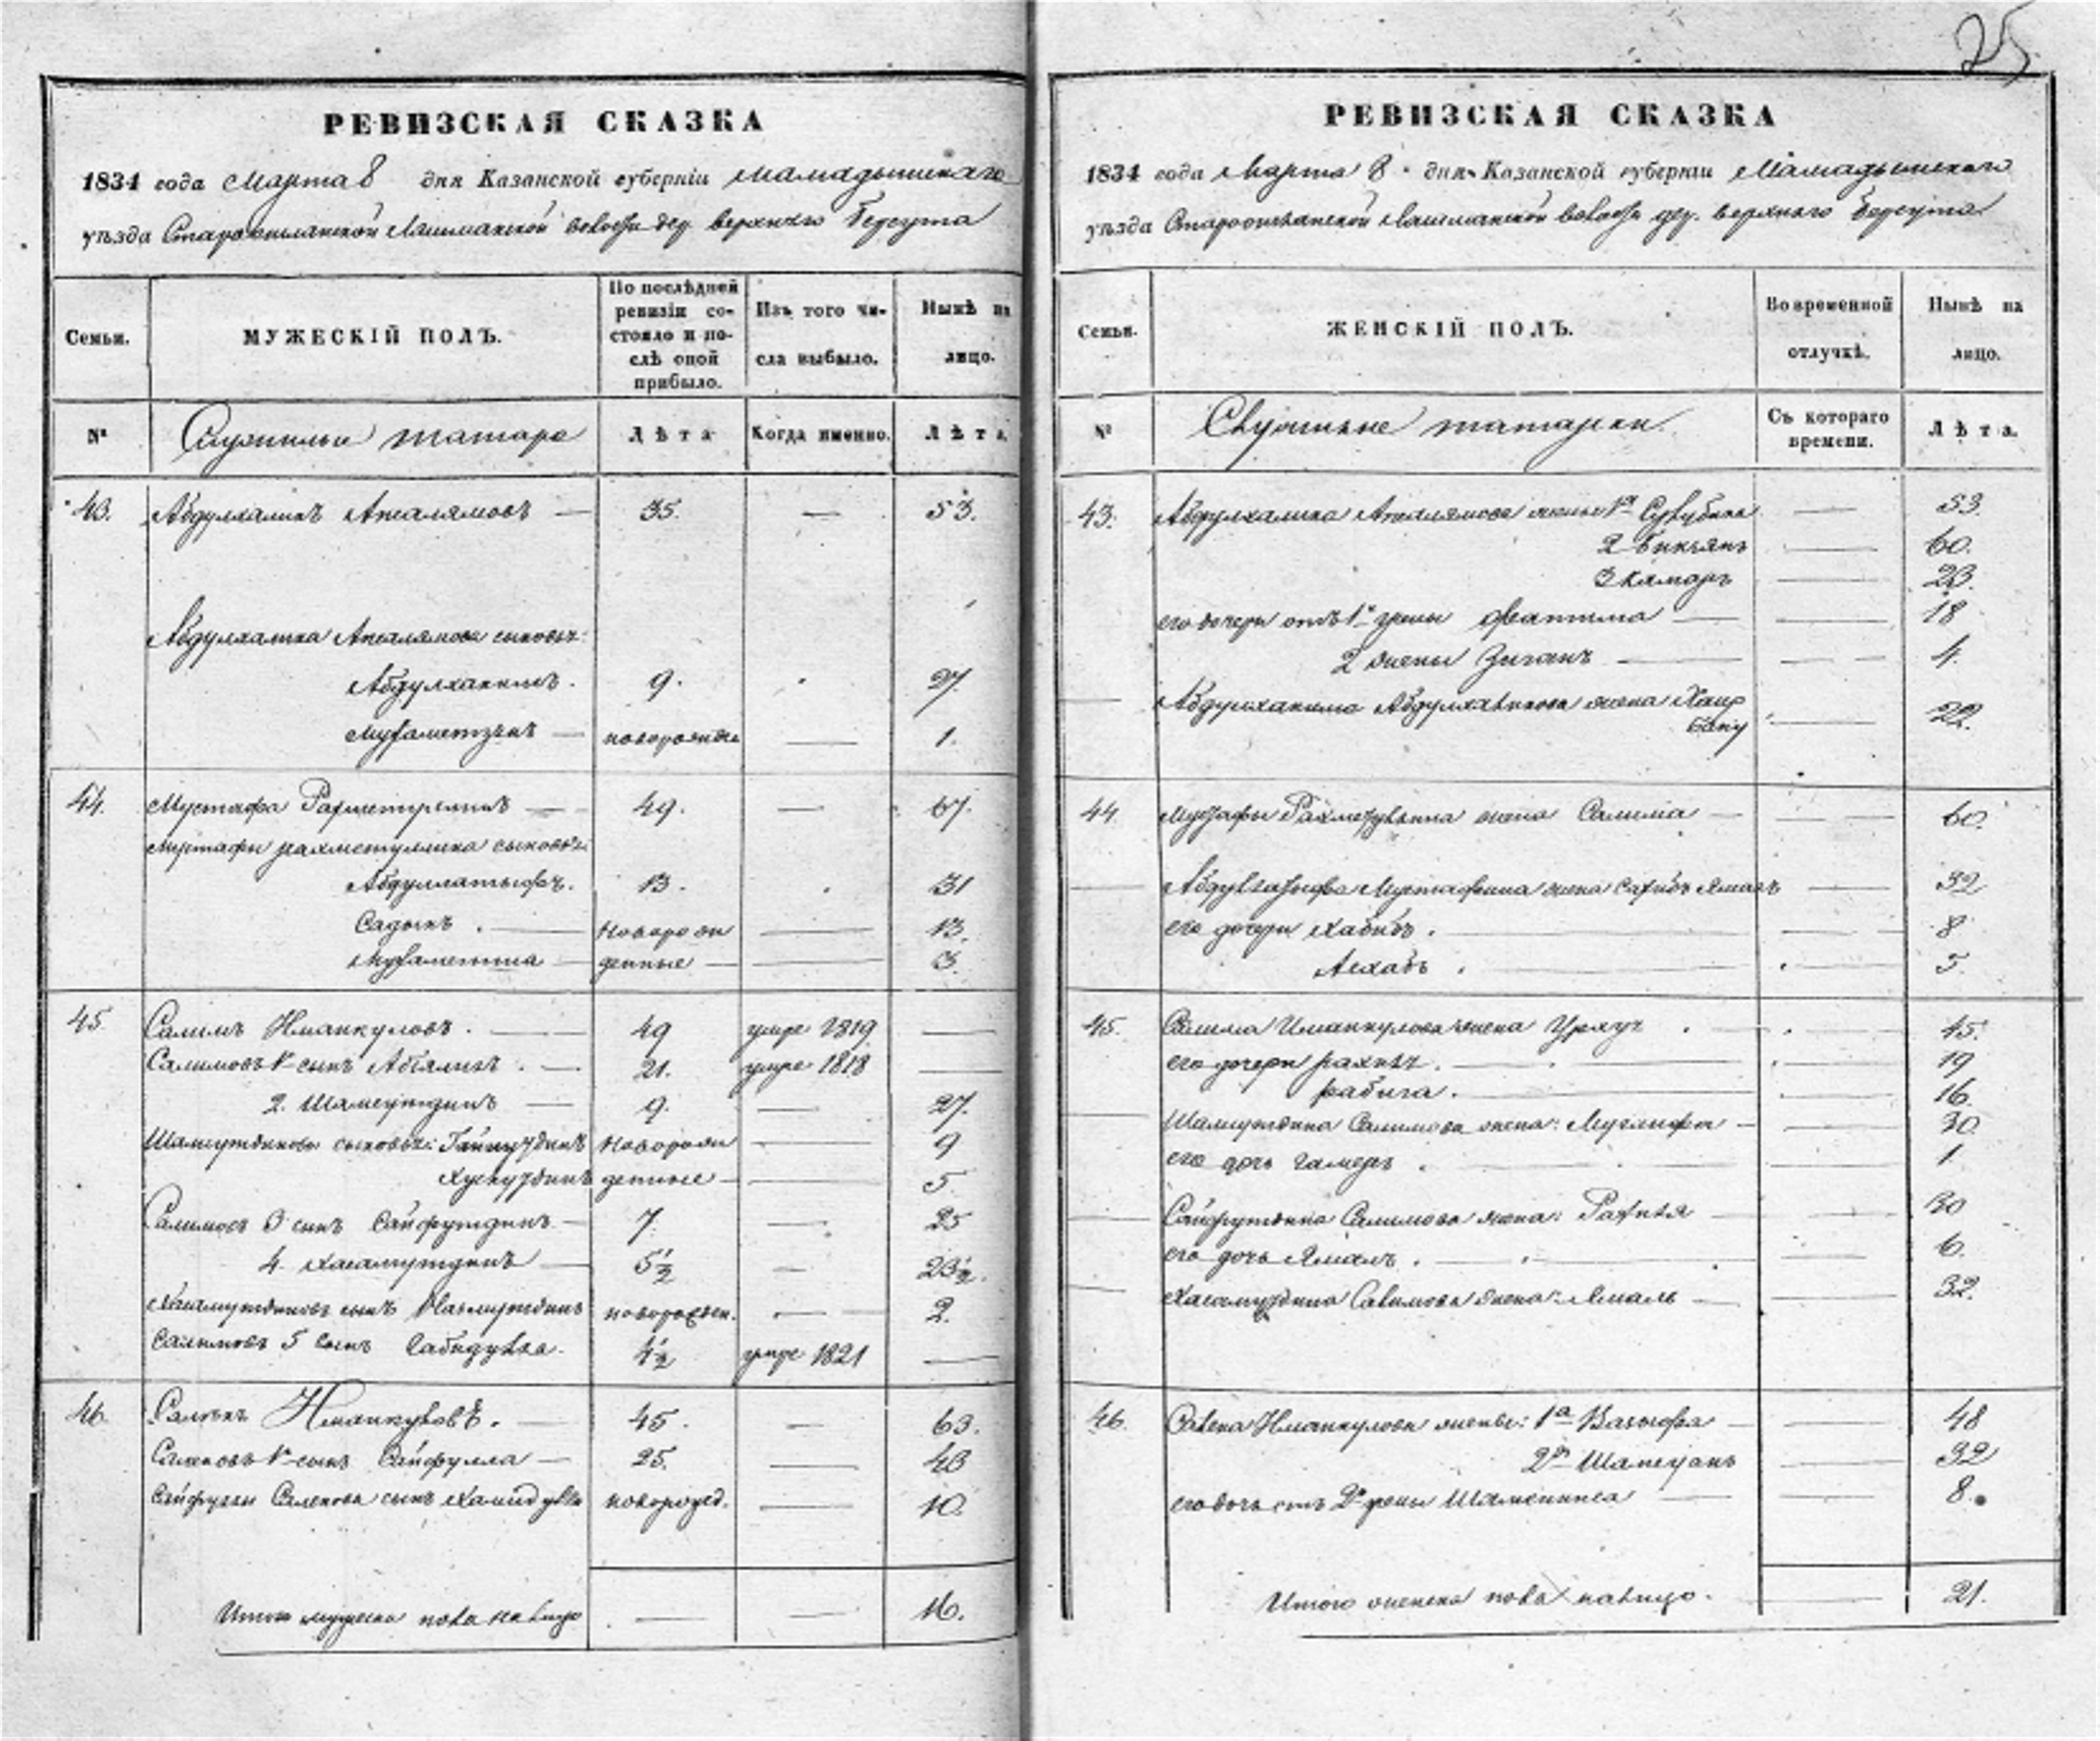 25
РЕВИЗСКАЯ СКАЗКА
1834 года Марта 8 дня Казанской губерніи Мамадышскаго
уѣзда Лашманской волости дер. верхняго Берсута
Семьи. МУЖЕСКІЙ ПОЛЪ. По послѣдней ревизіи состояло и послѣ оной прибыло. Изъ того числа выбыло. Нынѣ на лицо.
№ Служилые татара Лѣта Когда именно. Лѣта
43. Абдулхаликъ Апсалямовъ — 35. — 53.
Абдулхалика Апсалямова сыновья:
Абдулхакимъ. 9. 27.
Мухаметзянъ — новорожден — 1.
44. Мустафа Рахметуллинъ — 49. — 67.
Мустафы рахметуллина сыновья:
Абдуллатыфъ. 13. 31
Садыкъ . — Новорож — 13.
— денные — 3.
45 Салимъ Иманкуловъ . — 49 умре 1819 —
Салимовъ 1й сынъ . — 21. умре 1818 —
2. Шамсутдинъ — 9. — 27.
Шамсутдиновы сыновья: Гайнутдинъ Новорож — 9
Хуснутдинъ денные — 5
Салимовъ 3 сынъ Сайфутдинъ — 7. — 25
4. Хасамутдинъ — 5½ — 23½.
Хасамутдиновъ сынъ новорожден. — 2.
Салимовъ 5 сынъ 4½ умре 1821 —
46. Салѣкъ Иманкуловъ. — 45. — 63.
1й сынъ Сайфулла — 25. — 43
Сайфуллы сынъ Хамидулла новорожд. — 10.
Итого мужеска пола на лицо . — — 16.
РЕВИЗСКАЯ СКАЗКА
1834 года Марта 8 дня Казанской губерніи Мамадышскаго
уѣзда Лашманской волости дер. верхняго Берсута
Семьи. ЖЕНСКІЙ ПОЛЪ. Во временной отлучкѣ. Нынѣ на лицо.
№ татарки Съ котораго времени. Лѣта.
43. Абдулхалика Апсалямова жены 1я — 53.
2 — 60.
3 Камаръ — 23.
его дочери отъ 1й жены Фатима — — 18
2 жены — — 4.
— Абдулхакима Абдулхаликова жена Хаир
бану — 22.
44 Мустафы Рахметуллина жена Салима — — 60.
— Абдуллатыфа Мустафина жена Сахибъ Ямалъ — 32
его дочери Хабибъ . — — 8
. — 5.
45. Салима Иманкулова жена . 45.
его дочери . — 19
рабига. — 16.
— Шамсутдина Салимова жена: — — 30.
его дочь . — — 1
— Сайфутдина Салимова жена: — — 30
его дочь Ямалъ . — — 6.
— Хасамутдина Салимова жена: Ямаль — — 32.
46. Иманкулова жены: 1я — — 48
2я — 32
его дочь отъ 2й жены — — 8.
Итого женска пола на лицо. — 21.